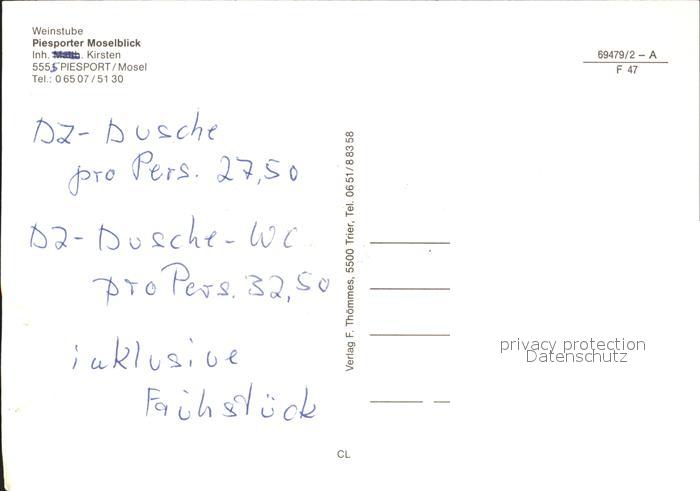 Weinstube
Piesporter Moselblick
Inh. Kirsten
5555 PIESPORT / Mosel
Tel.: 0 65 07 / 51 30
69479/2 – A
F 47
DZ - Dusche
pro Pers. 27,50
DZ - Dusche - WC
pro Pers. 32,50
inklusive
Frühstück
Verlag F. Thömmes, 5500 Trier, Tel. 06 51 / 8 83 58
privacy protection
Datenschutz
CL